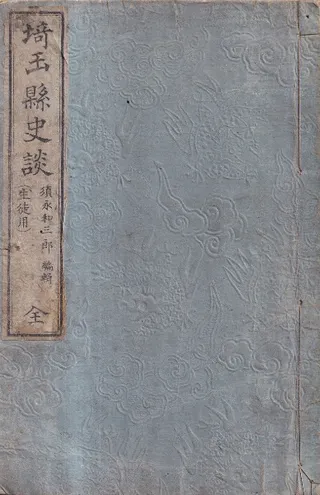 埼玉縣史談
須永和三郎 編輯
(生徒用)
全